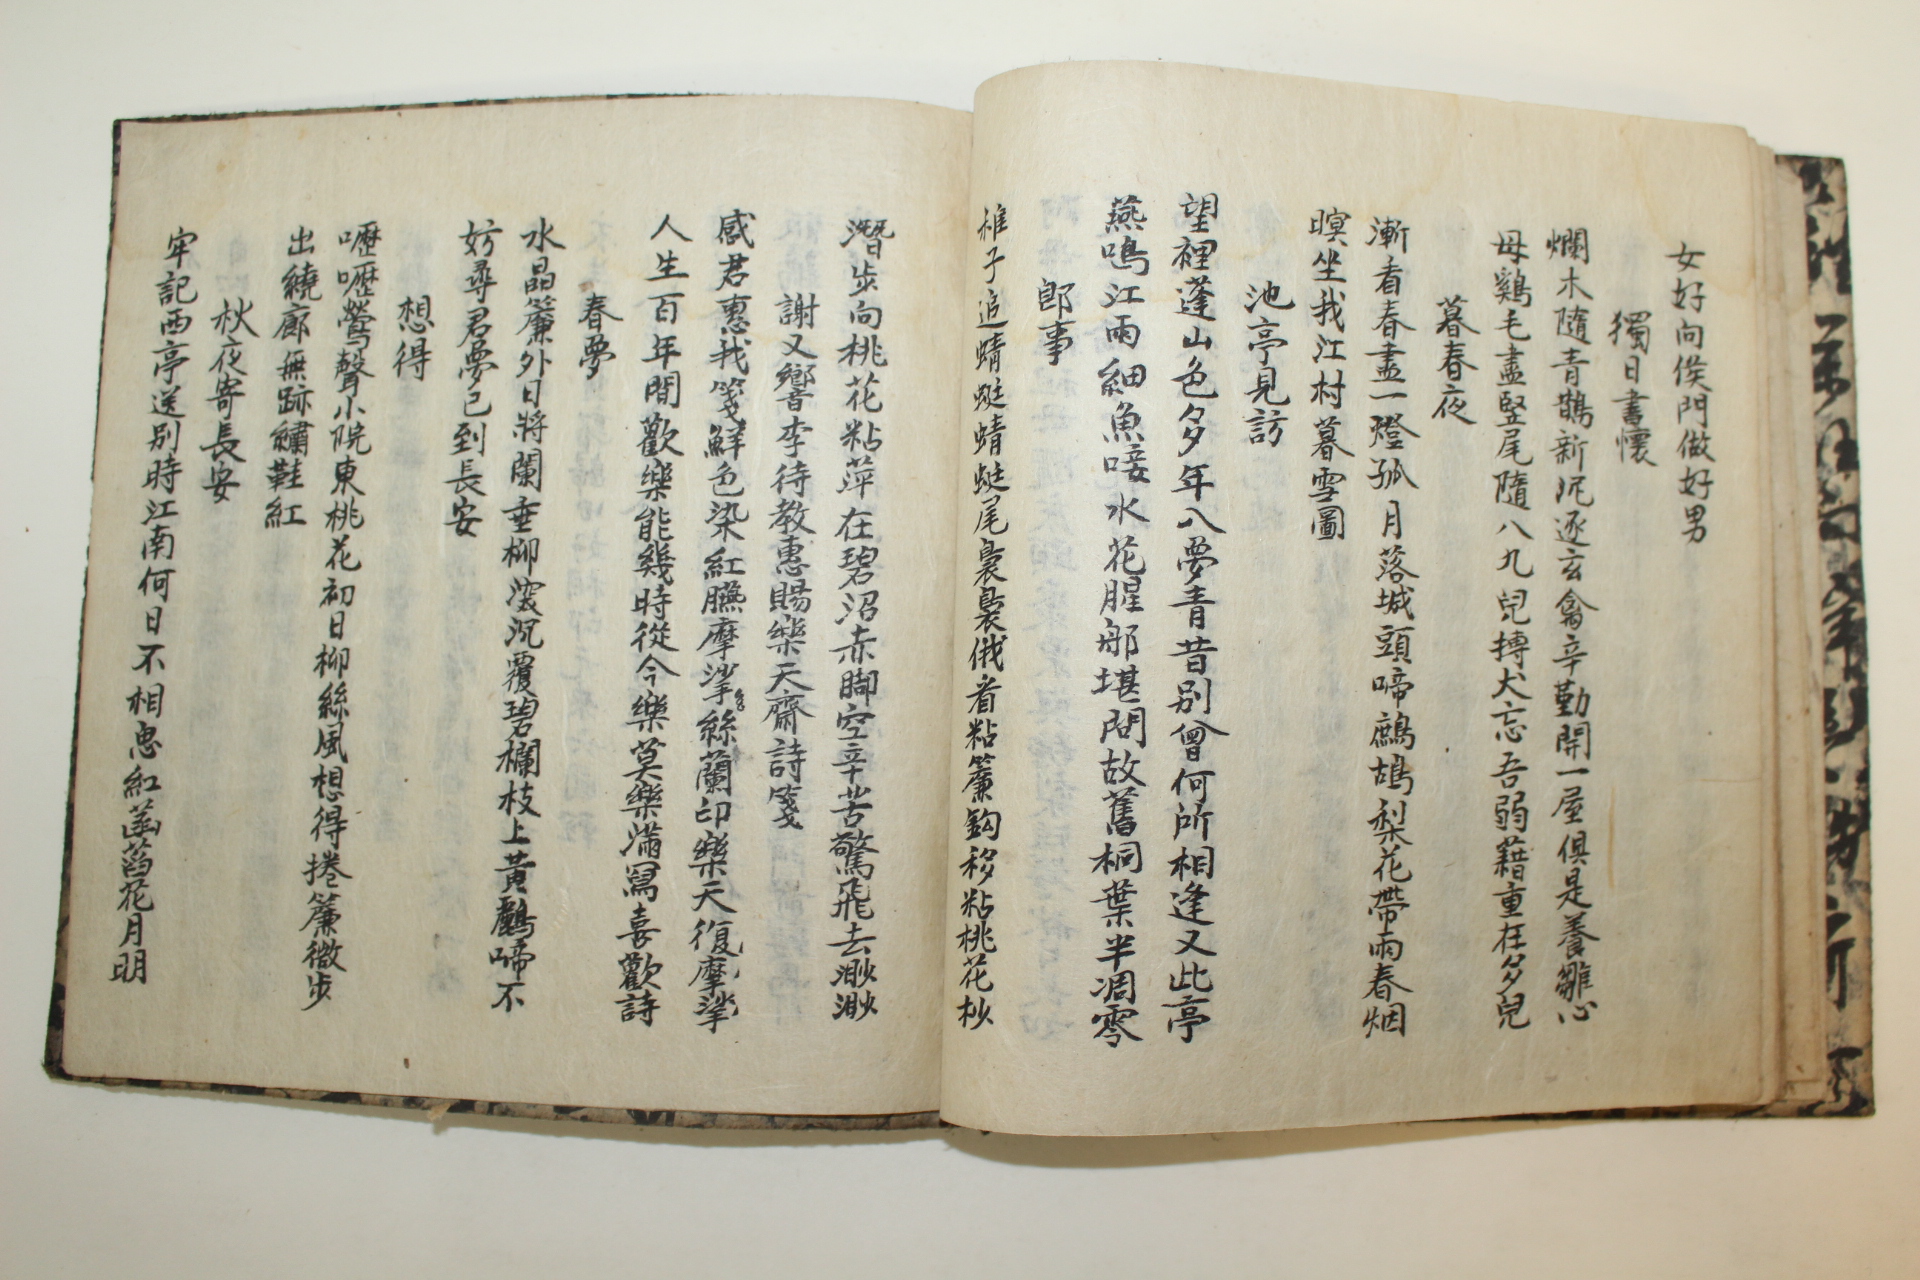 女好向侯門做好男
獨日書懷
爛木隨青鵲新泥逐玄禽辛勤開一屋俱是養雛心
母鷄毛盡竪尾隨八九兒搏犬忘吾弱藉重在多兒
暮春夜
漸看春盡一燈孤月落城頭啼鷓鴣梨花帶雨春烟
暝坐我江村暮雪圖
池亭見訪
望裡蓬山色多年入夢青昔別曾何所相逢又此亭
燕鳴江雨細魚唼水花腥那堪問故舊桐葉半凋零
郞事
稚子追蜻蜓蜻蜓尾裊裊俄看粘簾鈎移粘桃花杪
潛步向桃花粘萍在碧沼赤脚空辛苦驚飛去渺渺
謝又響李待教惠賜樂天齋詩箋
感君惠我箋鮮色染紅臙摩挲絲蘭印樂天復摩挲
人生百年間歡樂能幾時從今樂莫樂滿寫喜歡詩
春夢
水晶簾外日將闌垂柳沈覆碧欄枝上黃鸝啼不
妨尋君夢已到長安
想得
嚦嚦鶯聲小院東桃花初日柳絲風想得捲簾微步
出繞廊無跡繡鞋紅
秋夜寄長安
牢記西亭送別時江南何日不相思紅菡萏花月明